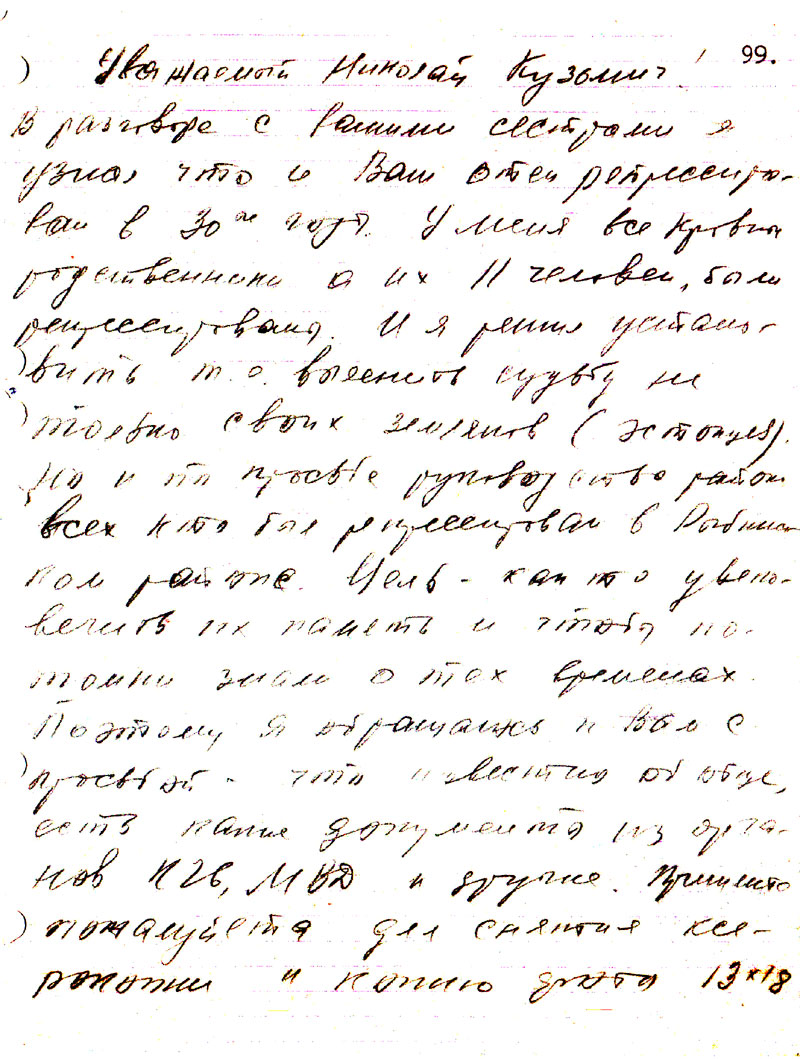 99.
Уважаемый Николай Кузьмич!
В разговоре с Вашими сестрами я
узнал что и Ваш отец репрессиро-
ван в 30ые годы. У меня все кровные
родственники а их 11 человек, были
репрессированы. И я решил устано-
вить т.е. выяснить судьбу не
только своих земляков (эстонцев).
Но и по просьбе руководства района
всех кто был репрессирован в Рыбинс-
ком районе. Цель - как то увеко-
вечить их память и чтобы по-
томки знали о тех временах.
Поэтому я обращаюсь к Вам с
просьбой - что известно об отце,
есть какие документы из орга-
нов КГБ, МВД и другие. Пришлите
пожалуйста для снятия ксе-
рокопии и копию фото 13х18